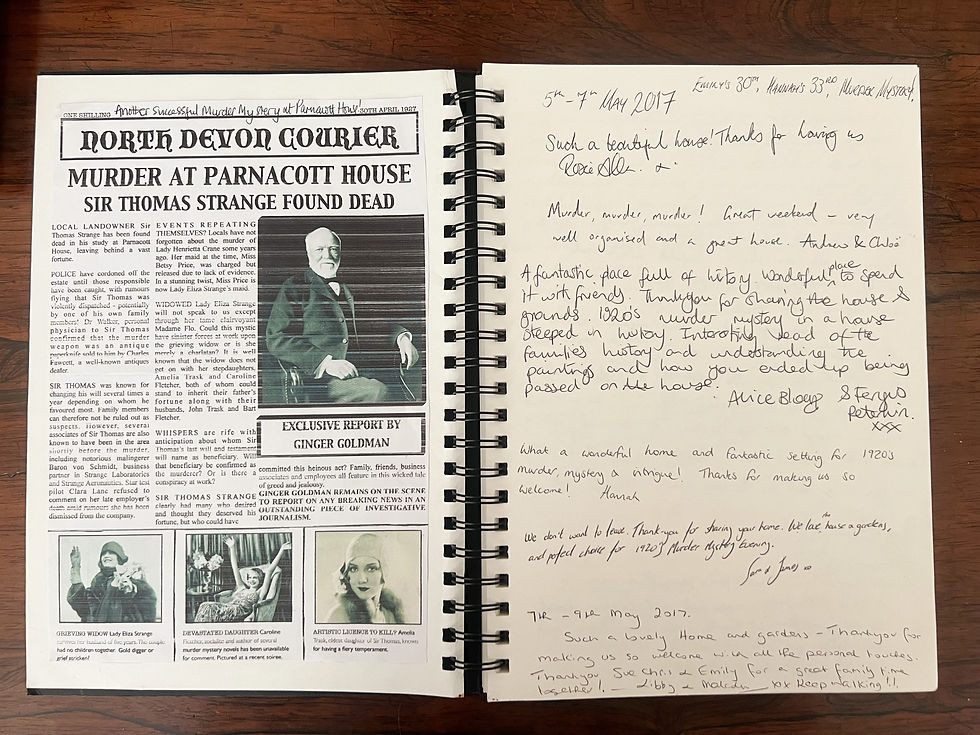 Another Successful Murder Mystery at Parnacott House!
ONE SHILLING
30TH APRIL 1927
NORTH DEVON COURIER
MURDER AT PARNACOTT HOUSE
SIR THOMAS STRANGE FOUND DEAD
LOCAL LANDOWNER Sir
Thomas Strange has been found
dead in his study at Parnacott
House, leaving behind a vast
fortune.
POLICE have cordoned off the
estate until those responsible
have been caught, with rumours
flying that Sir Thomas was
violently dispatched - potentially
by one of his own family
members! Dr Walker, personal
physician to Sir Thomas
confirmed that the murder
weapon was an antique
paperknife sold to him by Charles
Fawcett, a well-known antiques
dealer.
SIR THOMAS was known for
changing his will several times a
year depending on whom he
favoured most. Family members
can therefore not be ruled out as
suspects. However, several
associates of Sir Thomas are also
known to have been in the area
shortly before the murder,
including notorious malingerer
Baron von Schmidt, business
partner in Strange Laboratories
and Strange Aeronautics. Star test
pilot Clara Lane refused to
comment on her late employer's
death amid rumours she has been
dismissed from the company.
EVENTS REPEATING
THEMSELVES? Locals have not
forgotten about the murder of
Lady Henrietta Crane some years
ago. Her maid at the time, Miss
Betsy Price, was charged but
released due to lack of evidence.
In a stunning twist, Miss Price is
now Lady Eliza Strange's maid.
WIDOWED Lady Eliza Strange
will not speak to us except
through her tame clairvoyant
Madame Flo. Could this mystic
have sinister forces at work upon
the grieving widow or is she
merely a charlatan? It is well
known that the widow does not
get on with her stepdaughters,
Amelia Trask and Caroline
Fletcher, both of whom could
stand to inherit their father's
fortune along with their
husbands, John Trask and Bart
Fletcher.
WHISPERS are rife with
anticipation about whom Sir
Thomas's last will and testament
will name as beneficiary. Will
that beneficiary be confirmed as
the murderer? Or is there a
conspiracy at work?
SIR THOMAS STRANGE
clearly had many who desired
and thought they deserved his
fortune, but who could have
EXCLUSIVE REPORT BY
GINGER GOLDMAN
committed this heinous act? Family, friends, business
associates and employees all feature in this wicked tale
of greed and jealousy.
GINGER GOLDMAN REMAINS ON THE SCENE
TO REPORT ON ANY BREAKING NEWS IN AN
OUTSTANDING PIECE OF INVESTIGATIVE
JOURNALISM.
GRIEVING WIDOW Lady Eliza Strange
survives her husband of five years. The couple
had no children together. Gold digger or
grief stricken?
DEVASTATED DAUGHTER Caroline
Fletcher, socialite and author of several
murder mystery novels has been unavailable
for comment. Pictured at a recent soiree.
ARTISTIC LICENCE TO KILL? Amelia
Trask, eldest daughter of Sir Thomas, known
for having a fiery temperament.
5th - 7th MAY 2017
EMILY'S 30th, HANNAH'S 33RD, MURDER MYSTERY!
Such a beautiful house! Thanks for having us
Rosie x
Murder, murder, murder! Great weekend - very
well organised and a great house. Andrew & Chloe
A fantastic place full of history wonderful place to spend
it with friends. Thankyou for sharing the house &
grounds. 1920's murder mystery in a house
steeped in history. Interesting read of the
families history and understanding the
paintings and how you ended up being
passed on the house.
Alice Bloey & Fergus
Peterkin.
xxx
What a wonderful home and fantastic setting for 1920s
murder, mystery & intrigue! Thanks for making us so
welcome! Hannah
We don't want to leave. Thank you for sharing your home. We love the house & gardens,
and perfect choice for 1920's Murder Mystery Evening.
Sam & James xo
7th - 9th May 2017.
Such a lovely Home and gardens - Thankyou for
making us so welcome with all the personal touches.
Thankyou Sue Chris & Emily for a great family time
together! - Libby & Malcolm xx Keep walking!!